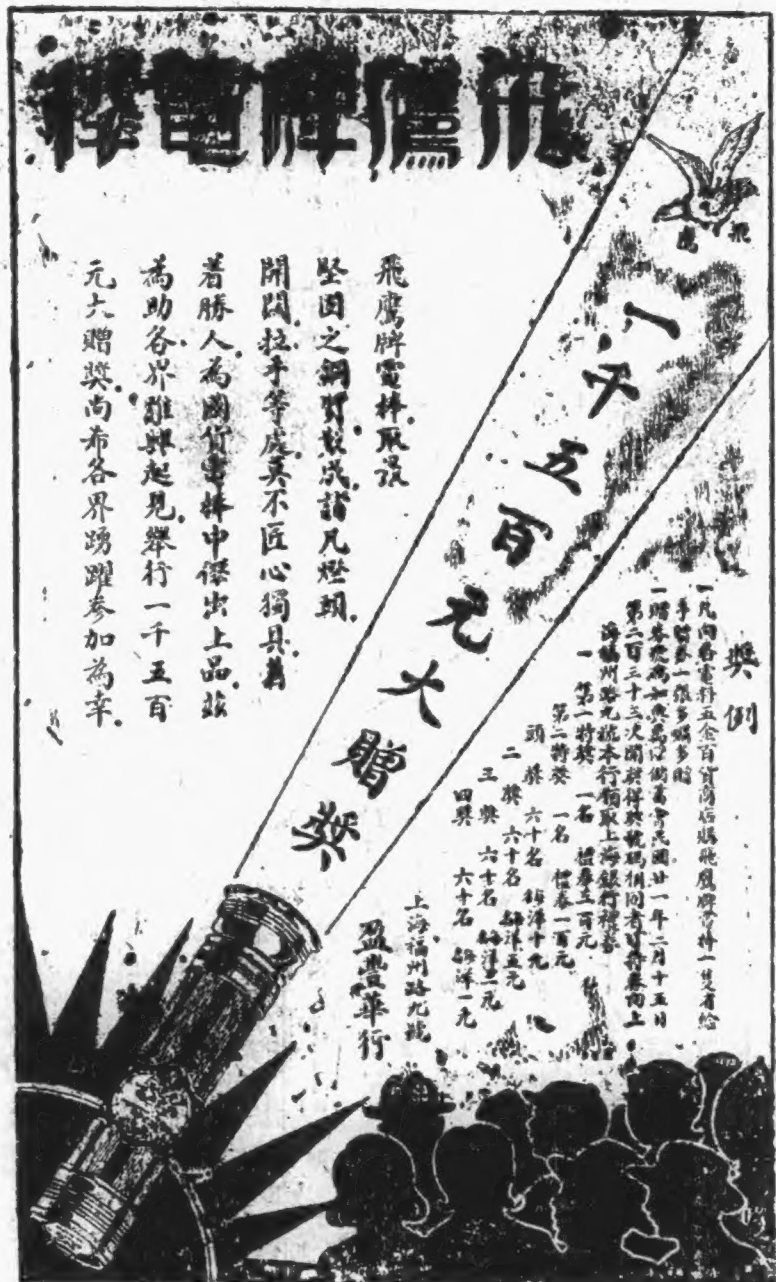 飛鷹牌電棒
飛鷹
一千五百元大贈獎
飛鷹牌電棒取最
堅固之鋼質製成諸凡燈頭
開関拉手等處莫不匠心獨具著
著勝人為國貨電棒中傑出上品茲
為助各界雅興起見舉行一千五百
元大贈獎尚希各界踴躍參加為幸
獎例
一凡向各電料五金百貨商店購飛鷹牌電棒一隻者給
手贈券一張多購多贈
一贈券號碼如與萬
儲蓄會民國廿一年二月十五日
第二百三十三次開獎得獎號碼相同者可持券向上
海福州路九號本行領取上海銀行禮券
一 第一特獎 一名 禮券
百元
第二特獎 一名 禮券一百元
頭獎 六十名
洋十元
二獎 六十名
洋五元
三獎 六十名
洋二元
四獎 六十名
洋一元
上海福州路九號
盈豐華行